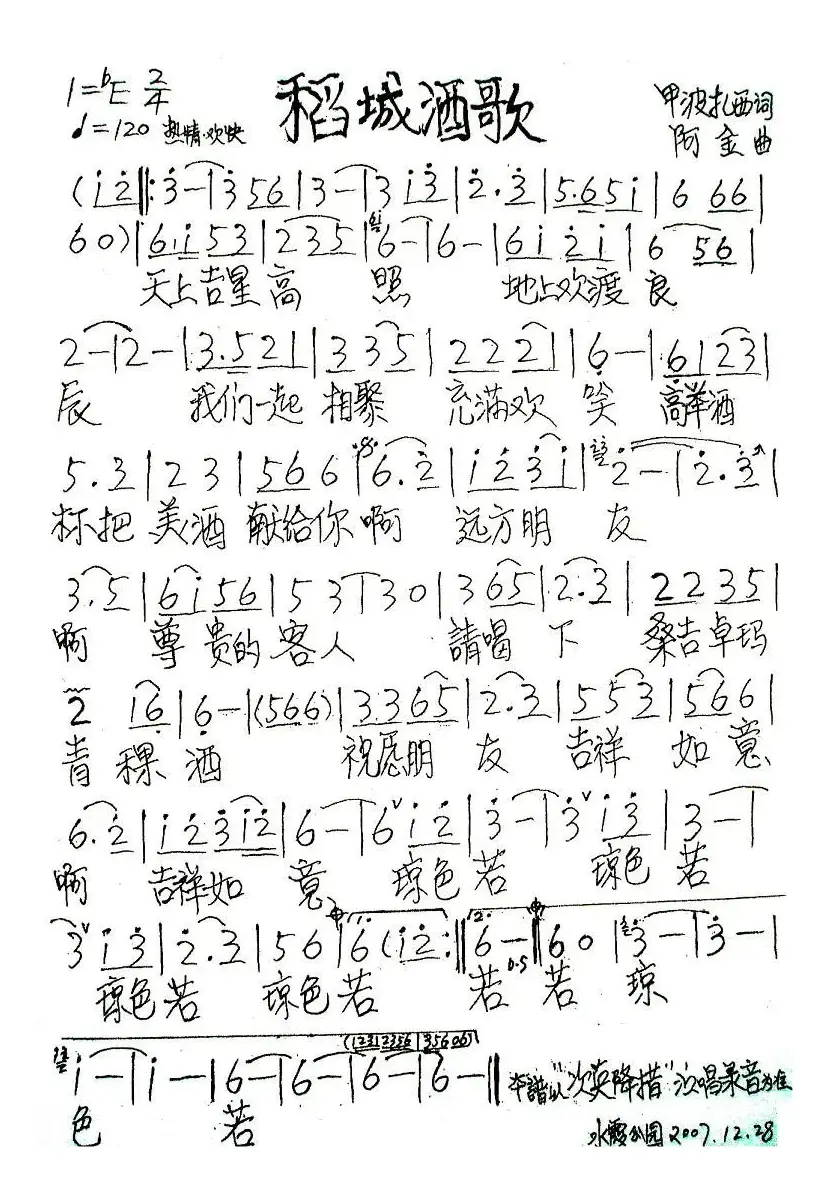 稻城酒歌
1=bE 2/4
♩=120 热情.欢快
甲波扎西词
阿金曲
(i 2̇ ‖: 3̇ - | 3̇ 5 6 | 3 - | 3 i 3̇ | 2̇. 3̇ | 5. 6 5 i | 6 6 6 |
6 0) | 6 i i 5 3 | 2 3 5 | 6 - | 6 - | 6 i 2̇ i | 6 5 6 |
天上吉星高 照 地上欢渡良
2 - | 2 - | 3. 5 2 1 | 3 3 5 | 2 2 2 1 | 6 - | 6 1 2 3 |
辰 我们一起 相聚 充满欢 笑 高举酒
5. 3 | 2 3 | 5 6 6 | 6. 2̇ | i 2̇ 3̇ i | 2̇ - | 2̇. 3̇ |
杯把 美酒 献给你 啊 远方朋 友
3. 5 | 6 i 5 6 | 5 3 | 3 0 | 3 6 5 | 2. 3 | 2 2 3 5 |
啊 尊贵的 客人 請喝下 桑吉卓玛
2 1 6 | 6 - | (5 6 6) | 3. 3 6 5 | 2. 3 | 5 5 3 | 5 6 6 |
青稞酒 祝愿朋 友 吉祥 如意
6. 2̇ | i 2̇ 3̇ i 2̇ | 6 - | 6 i 2̇ | 3̇ - | 3̇ i 3̇ | 3 - |
啊 吉祥如 意 琼色若 琼色若
3̇ i 3̇ | 2̇. 3 | 5 6 | 6 (i 2̇ :‖ 6 - ‖ 6 0 | 3̇ - | 3̇ - |
1. 2. D.S
琼色若 琼色若 若 若 琼
(1231 2356 | 3560 6)
i - | i - | 6 - | 6 - | 6 - | 6 - ‖
色 若
本譜以“次英降措”演唱录音为准
水霞公园 2007.12.28